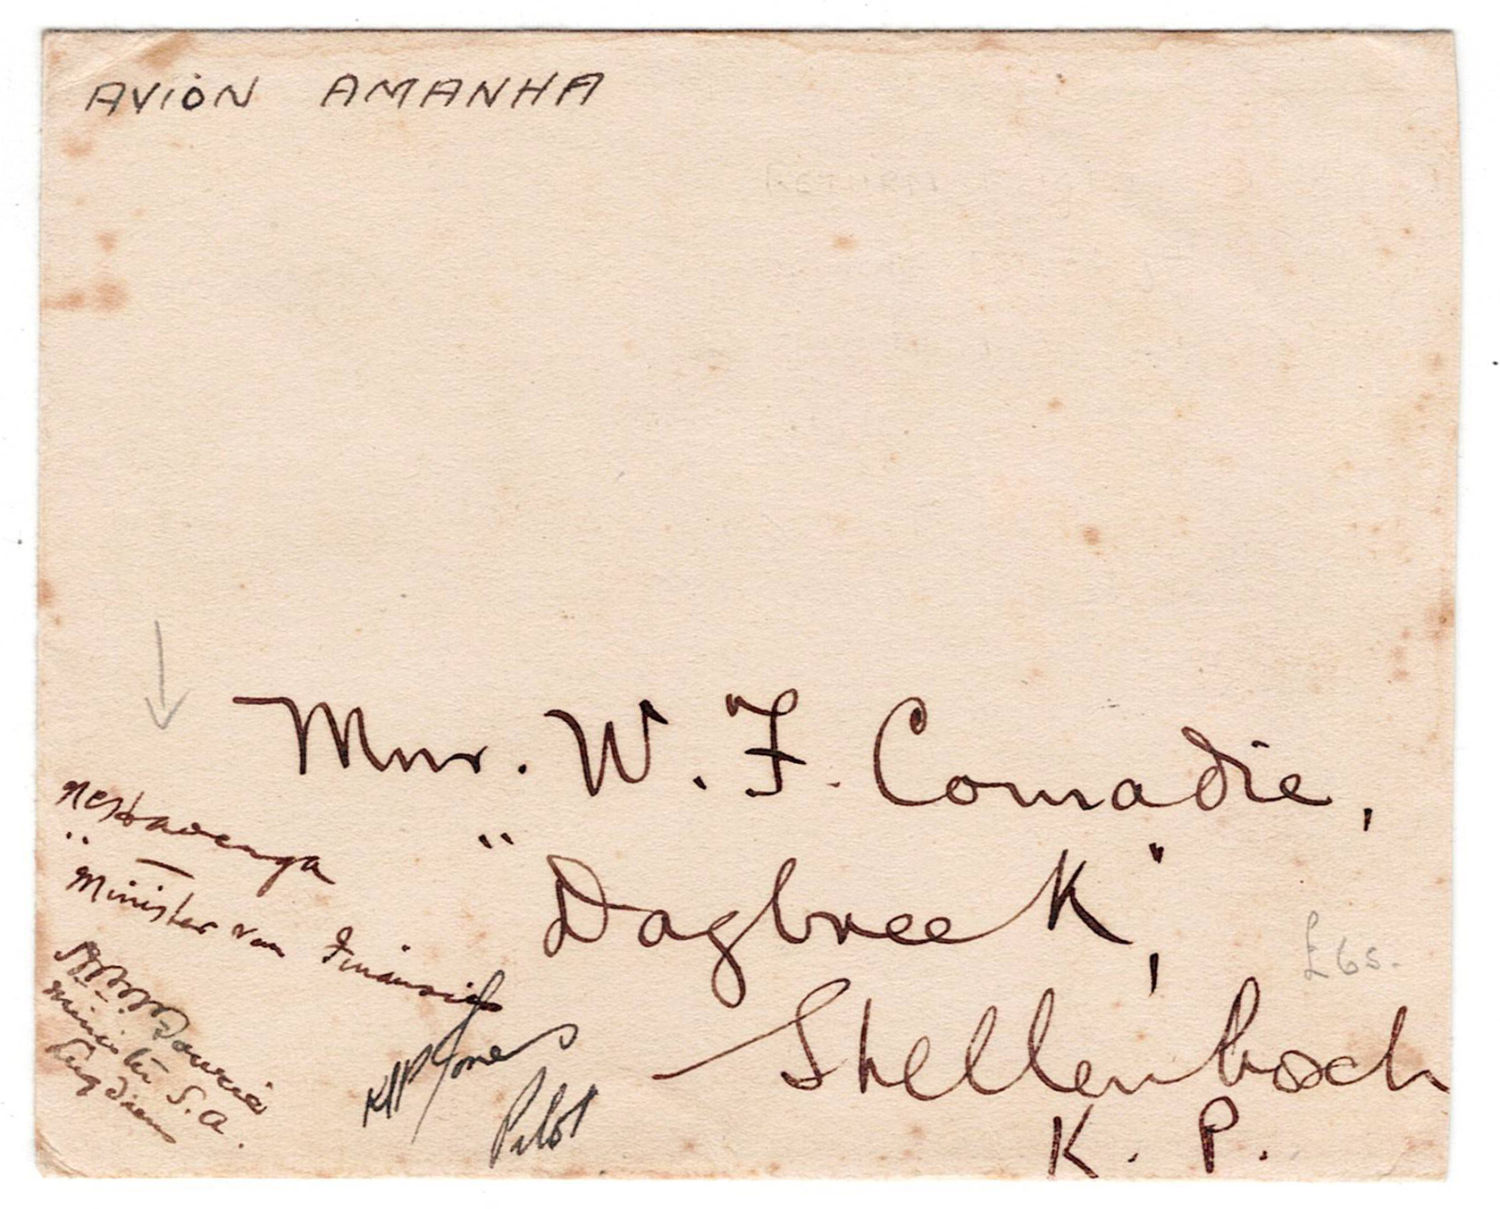 AVIÒN AMANHA
RETURN
Mnr. W. F. Conradie,
"Dagbreek",
Stellenbosch
K. P.
£6s.
Minister van Finansies
Minister S.A.
Lugdiens
KHP Jones
Pilot